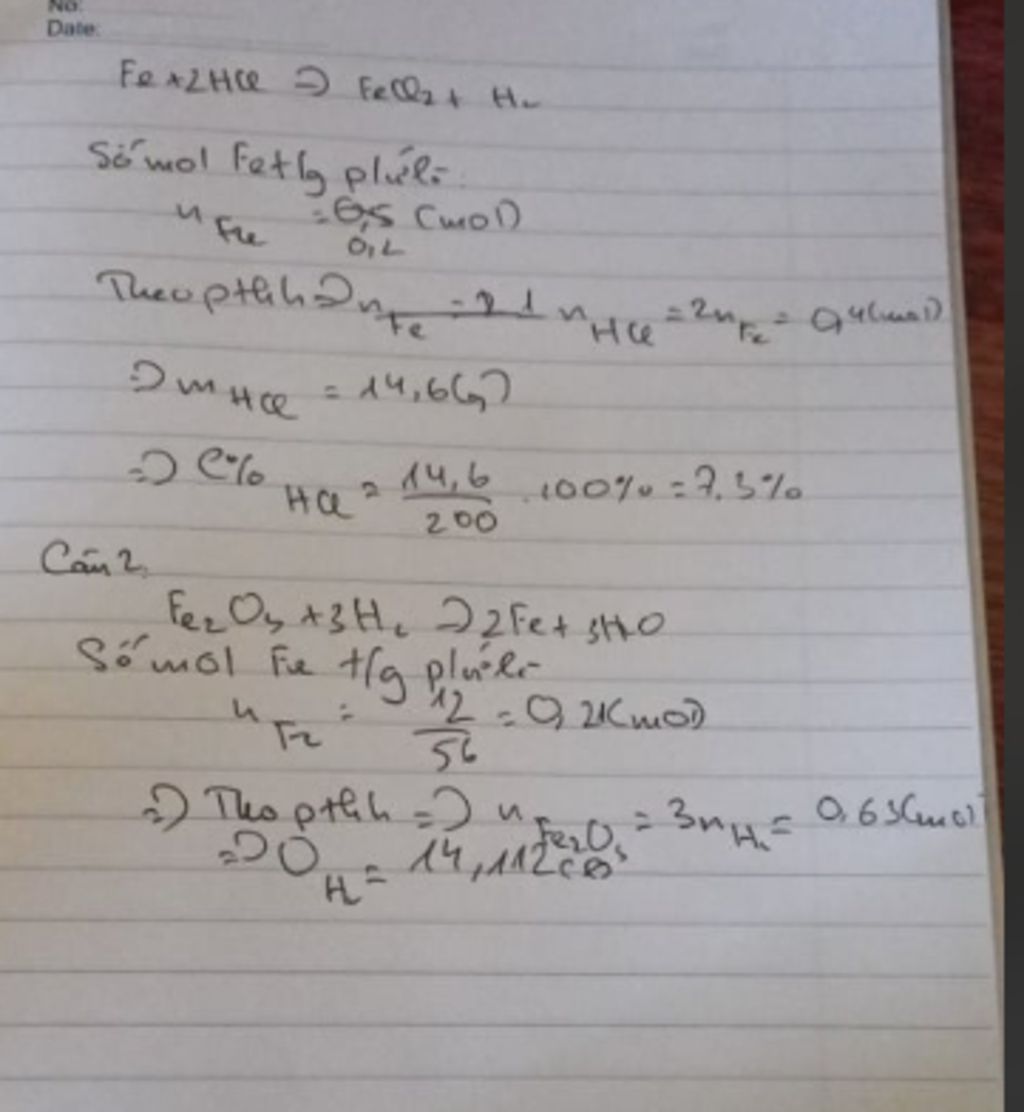 No:
Date:
Fe + 2HCl => FeCl2 + H2
Số mol Fe t/g p/ư là:
nFe = 0,5 (mol)
0,2
Theo ptHh => nFe = 2 1 nHCl = 2nFe = 0,4 (mol)
=> mHCl = 14,6 (g)
=> C% HCl = 14,6/200 . 100% = 7.3%
Câu 2.
Fe2O3 + 3H2 => 2Fe + 3H2O
Số mol Fe t/g p/ư là
nFe = 12/56 = 0,21 (mol)
=> Theo ptHh => nFe2O3 = 3nH2 = 0,63 (mol)
=> H2 = 14,112